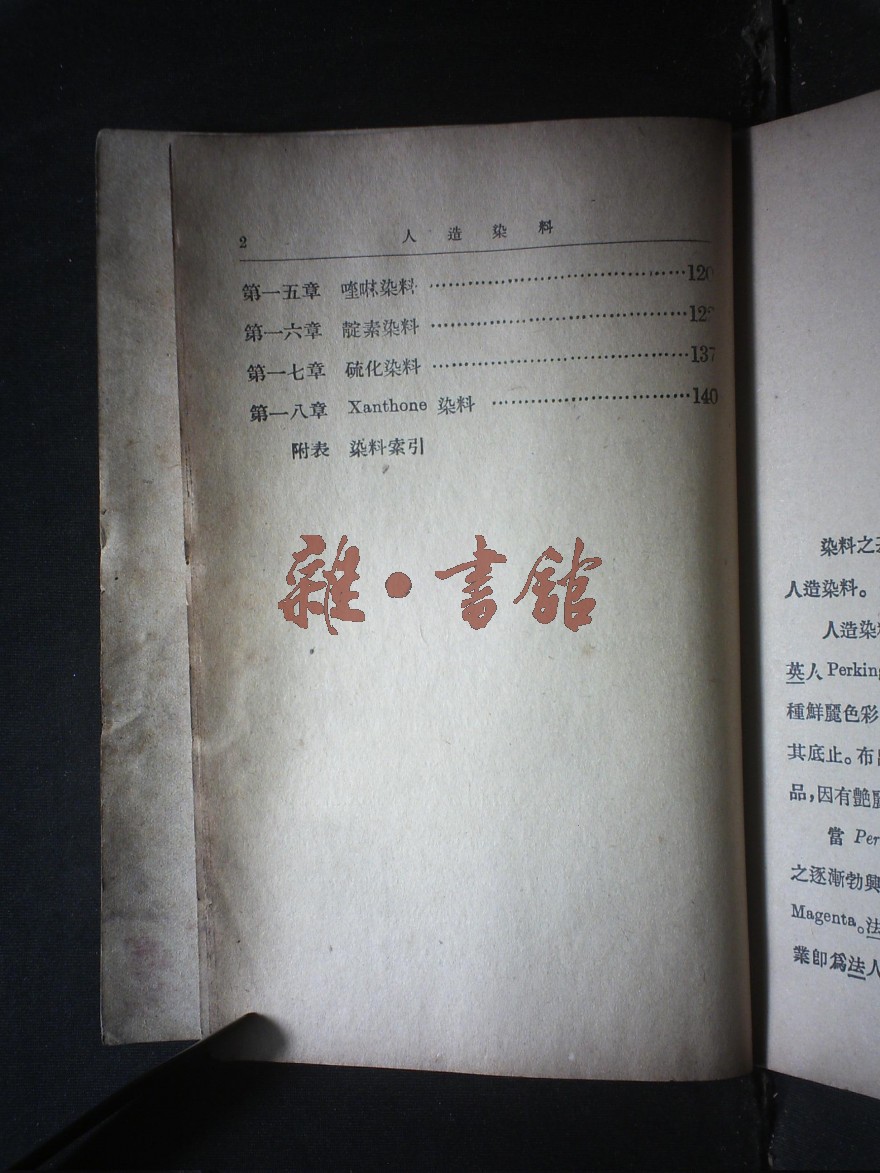 2 人造染料
第一五章 喹啉染料 ……………………………………120
第一六章 靛素染料 ……………………………………12
第一七章 硫化染料 ……………………………………137
第一八章 Xanthone 染料 ……………………………140
附表 染料索引
雜·書館
染料之
人造染料。
人造染料
英人 Perkin
種鮮麗色彩
其底止。布
品,因有艷麗
當 Per
之逐漸勃興
Magenta。法
業卽爲法人